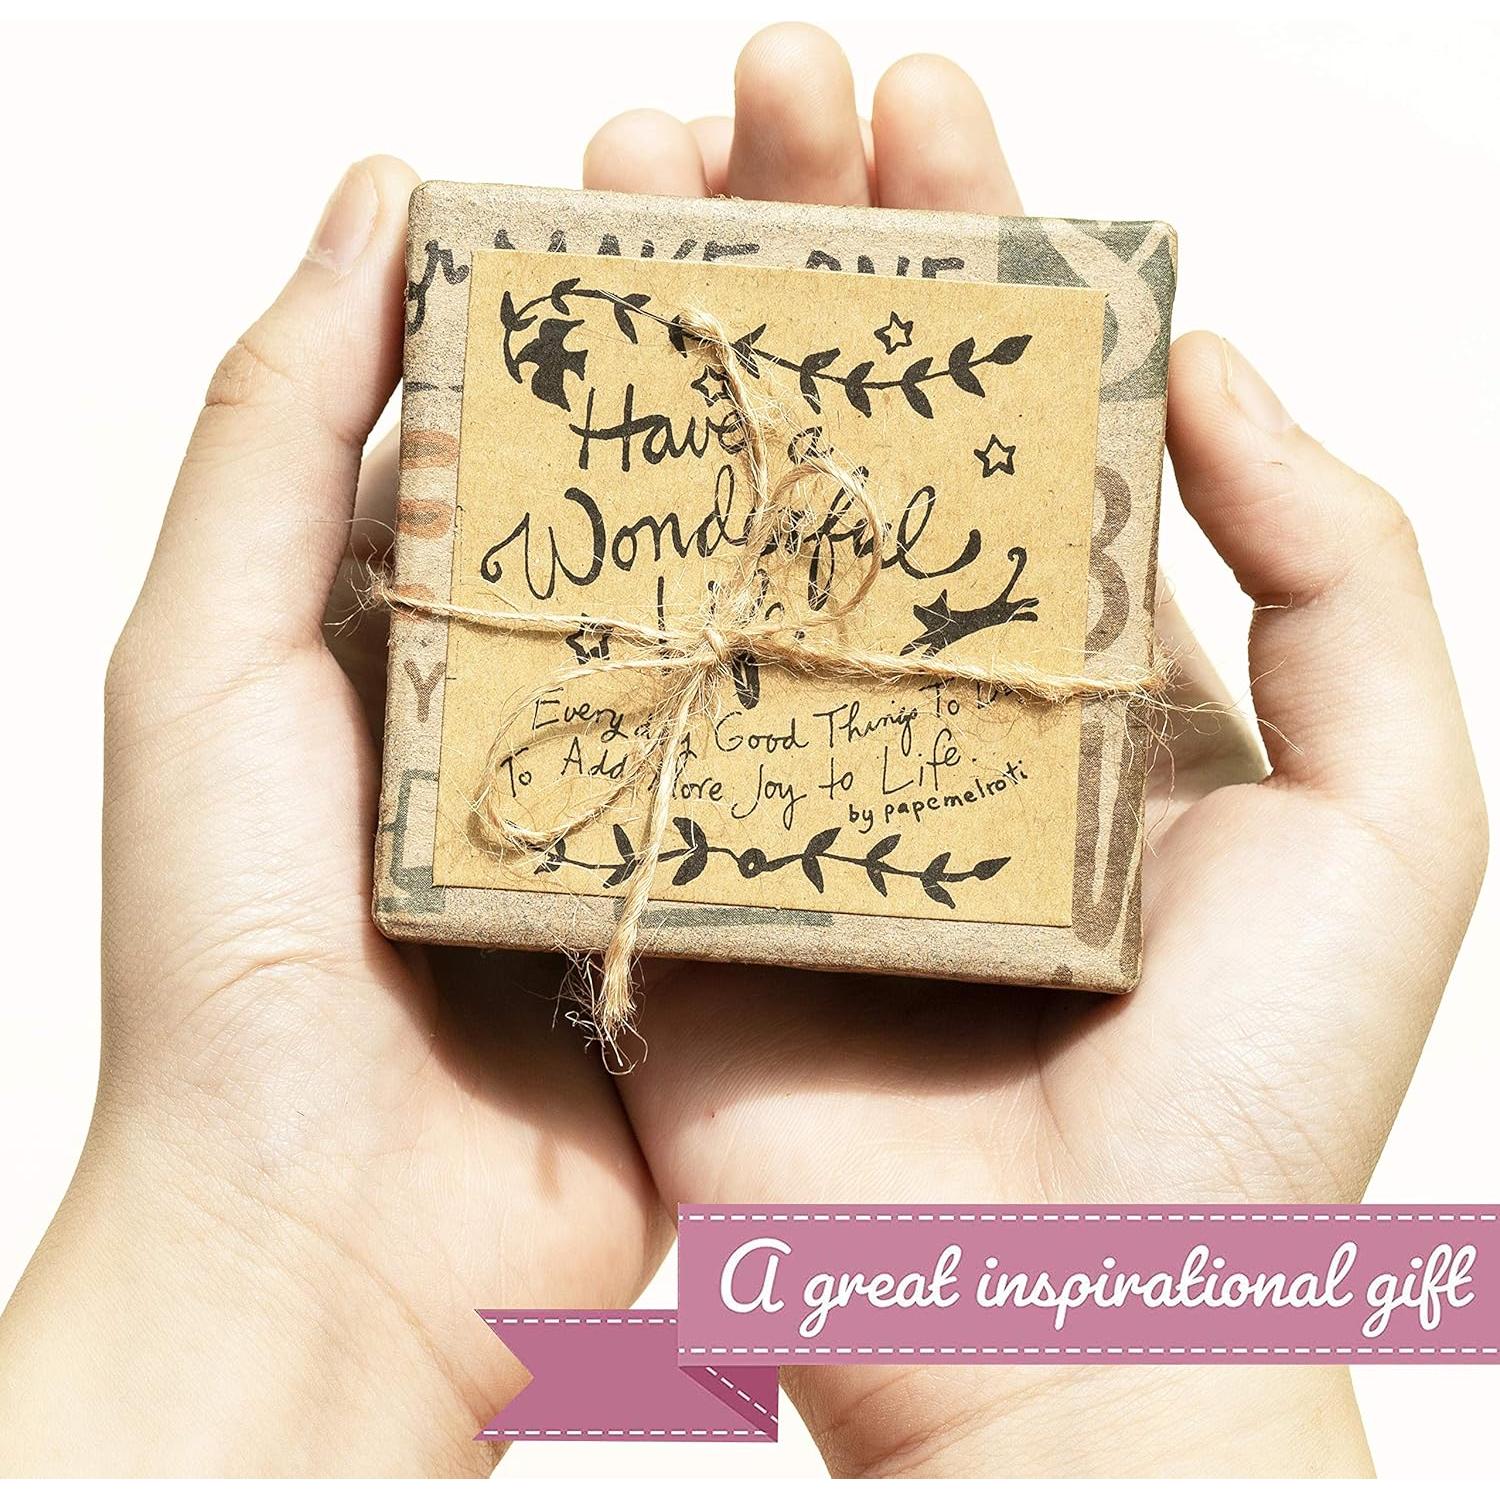 MAKE ONE
Have a
Wonderful
Life
Everyday Good Things To Do
To Add More Joy to Life.
by papemelroti
A great inspirational gift